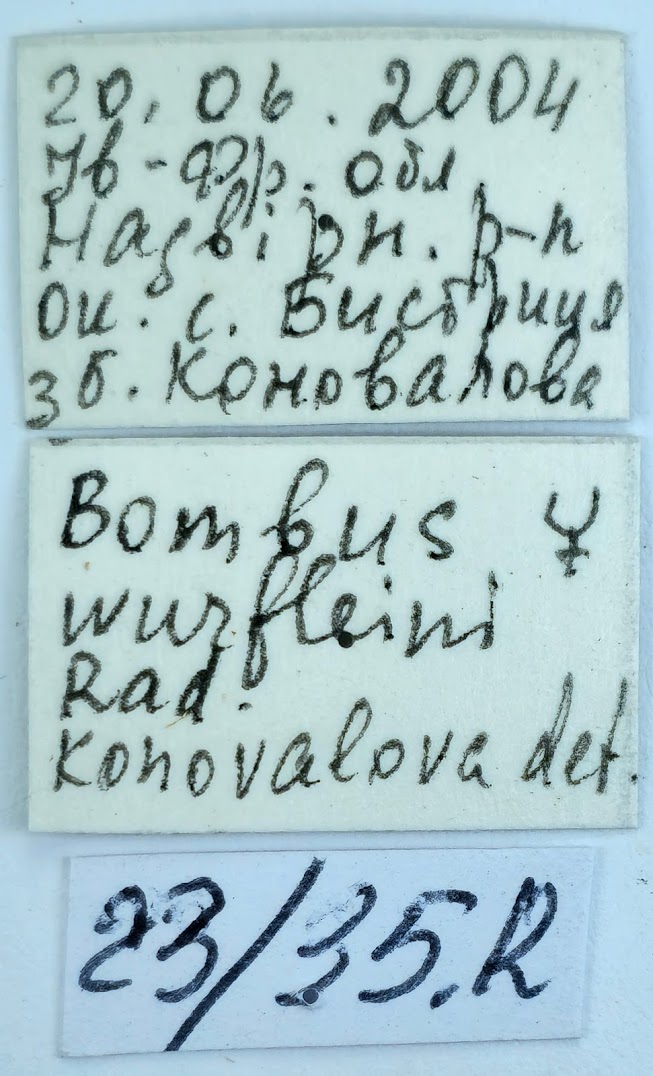 20.06.2004
Ів-Фр. обл
Надвірн. р-н
Ок. с. Бистриця
зб. Коновалова
Bombus ☿
wurfleini
Rad.
Konovalova det.
23/35.R